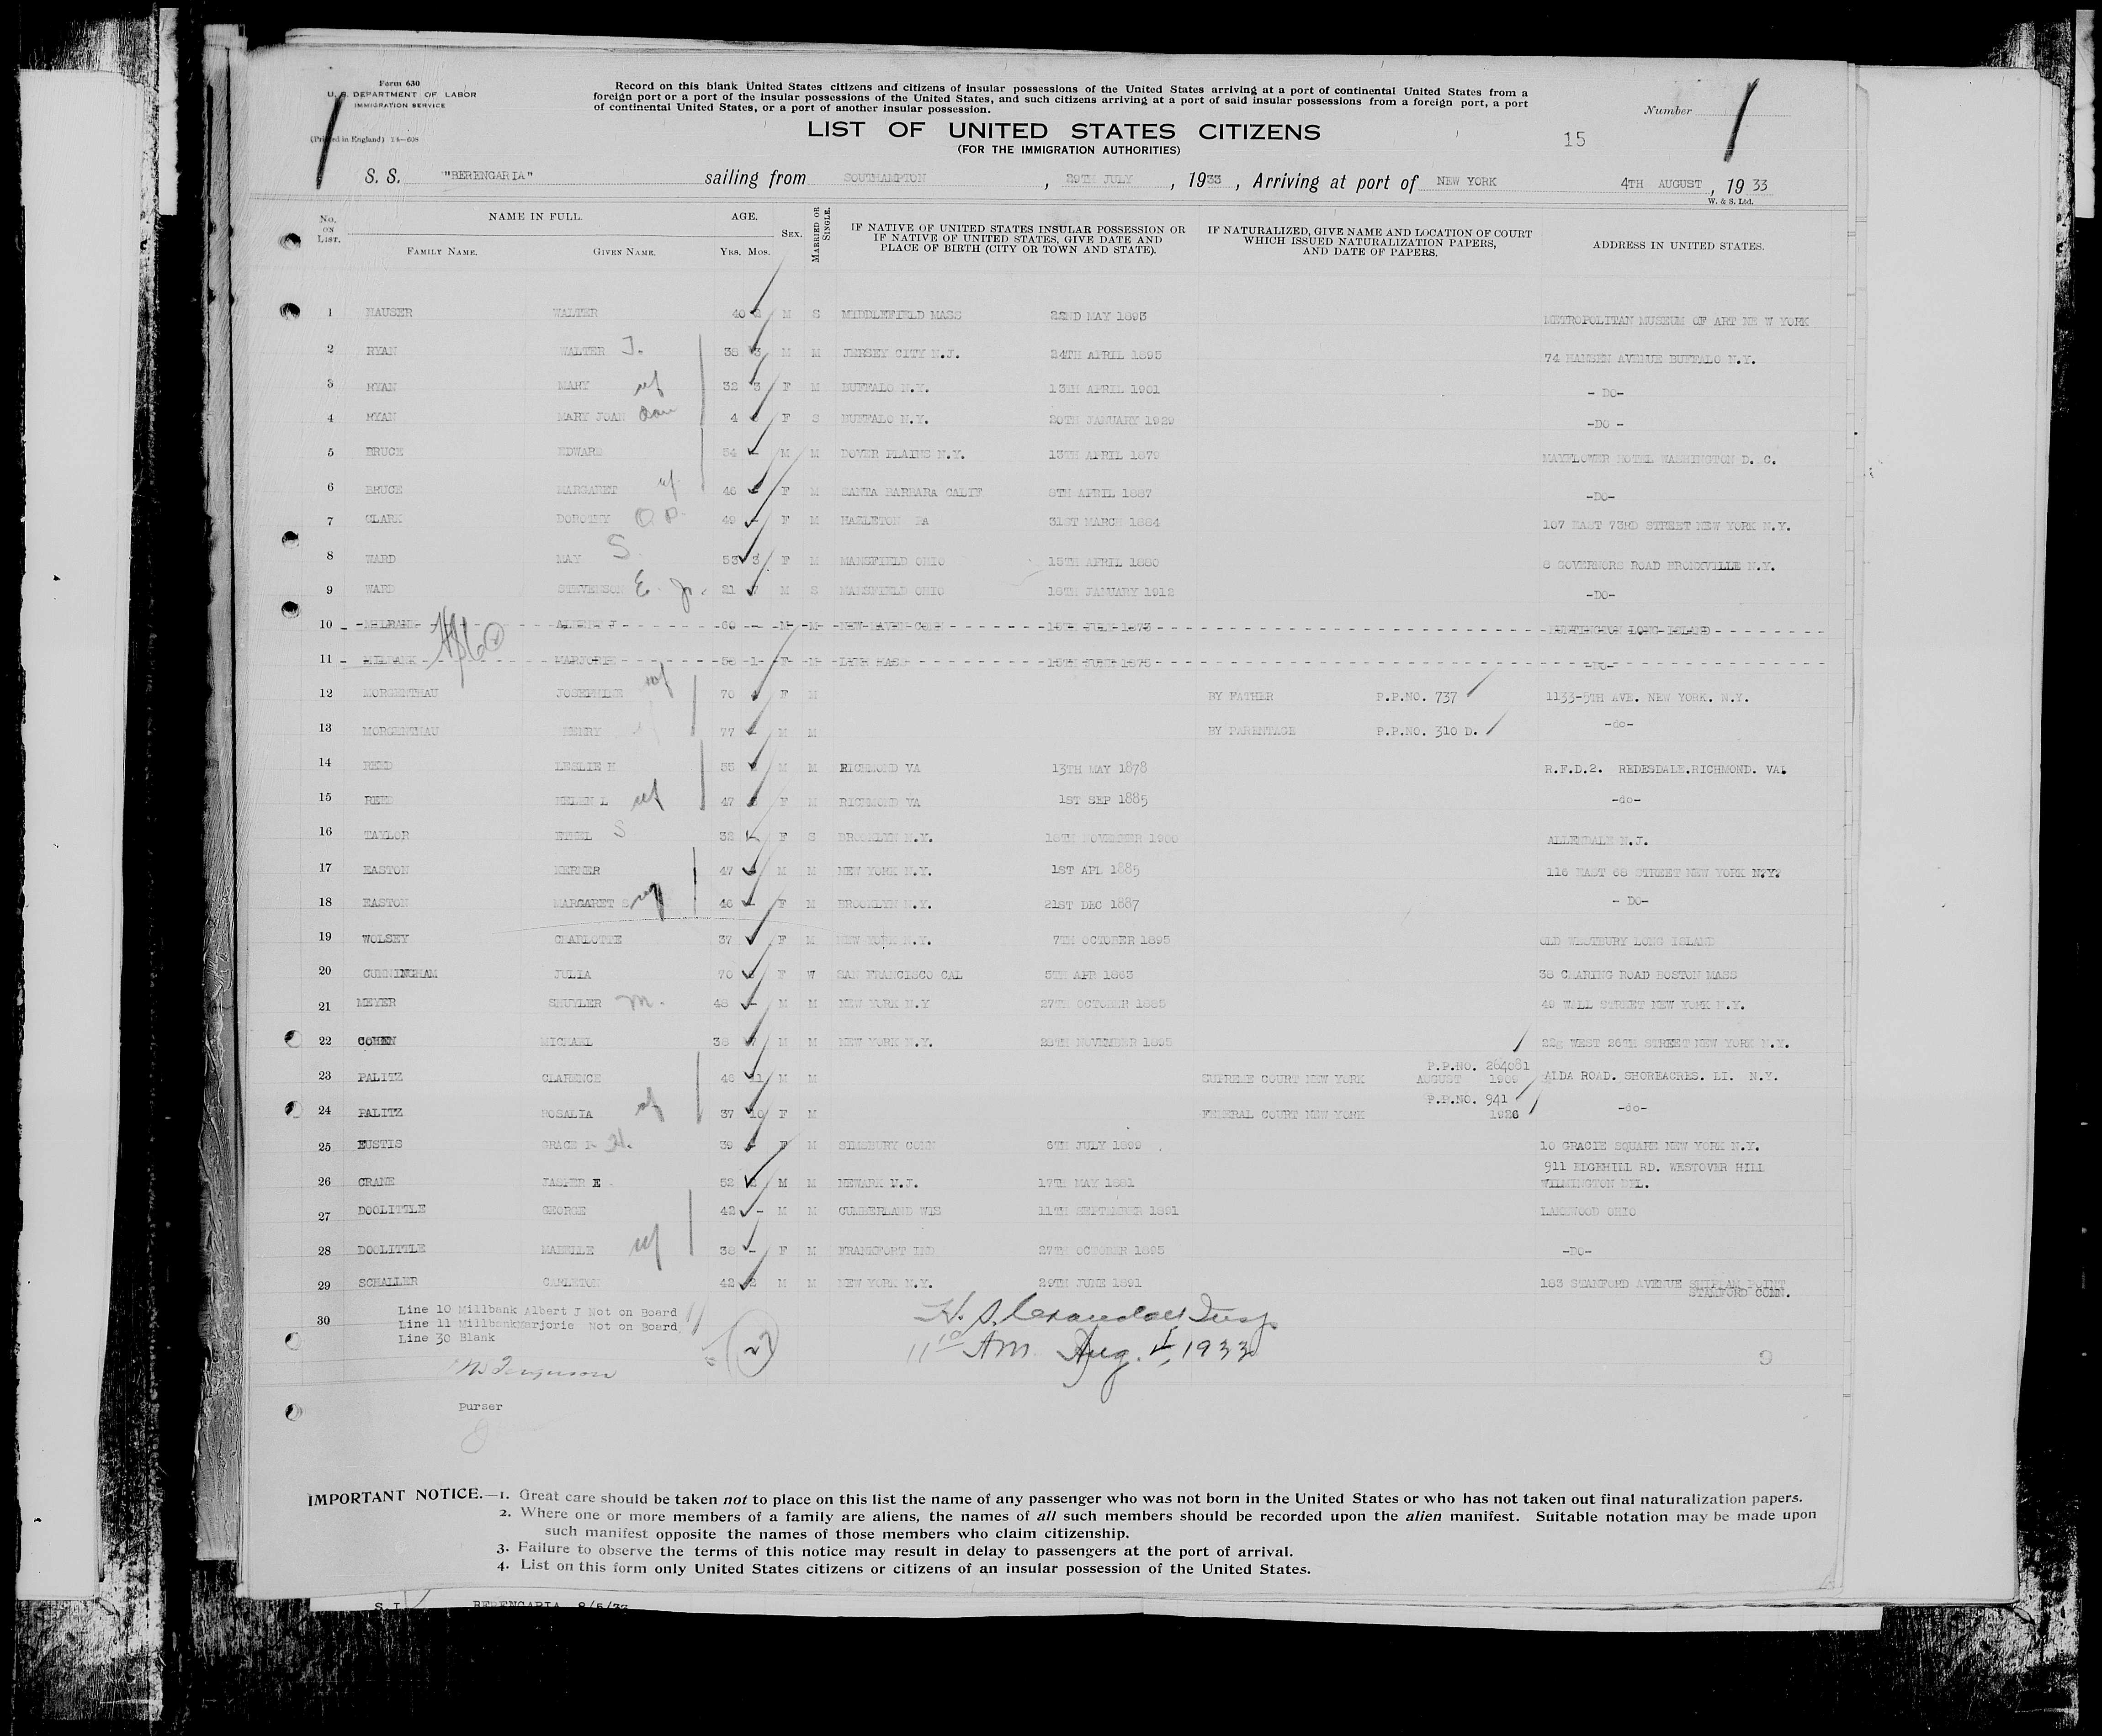 Form 630
U. S. DEPARTMENT OF LABOR
IMMIGRATION SERVICE
(Printed in England) 14—608
Record on this blank United States citizens and citizens of insular possessions of the United States arriving at a port of continental United States from a
foreign port or a port of the insular possessions of the United States, and such citizens arriving at a port of said insular possessions from a foreign port, a port
of continental United States, or a port of another insular possession.
Number
LIST OF UNITED STATES CITIZENS
(FOR THE IMMIGRATION AUTHORITIES)
15
S. S. "BERENGARIA" sailing from SOUTHAMPTON, 29TH JULY, 1933, Arriving at port of NEW YORK 4TH AUGUST, 1933
W. & S. Ltd.
No. ON LIST. NAME IN FULL. FAMILY NAME. GIVEN NAME. AGE. YRS. MOS. SEX. MARRIED OR SINGLE. IF NATIVE OF UNITED STATES INSULAR POSSESSION OR IF NATIVE OF UNITED STATES, GIVE DATE AND PLACE OF BIRTH (CITY OR TOWN AND STATE). IF NATURALIZED, GIVE NAME AND LOCATION OF COURT WHICH ISSUED NATURALIZATION PAPERS, AND DATE OF PAPERS. ADDRESS IN UNITED STATES.
1 HAUSER WALTER 40 M S MIDDLEFIELD MASS 22ND MAY 1893 METROPOLITAN MUSEUM OF ART NE W YORK
2 RYAN WALTER J. 38 3 M M JERSEY CITY N.J. 24TH APRIL 1895 74 HANSEN AVENUE BUFFALO N.Y.
3 RYAN MARY wf 32 3 F M BUFFALO N.Y. 13TH APRIL 1901 - DO-
4 RYAN MARY JOAN dau 4 F S BUFFALO N.Y. 20TH JANUARY 1929 -DO -
5 BRUCE EDWARD 54 - M M DOVER PLAINS N.Y. 13TH APRIL 1879 MAYFLOWER HOTEL WASHINGTON D. C.
6 BRUCE MARGARET wf 46 F M SANTA BARBARA CALIF 8TH APRIL 1887 -DO-
7 CLARK DOROTHY O.P. 49 - F M HAZLETON PA 31ST MARCH 1884 107 EAST 73RD STREET NEW YORK N.Y.
8 WARD MAY S. 53 3 F M MANSFIELD OHIO 15TH APRIL 1880 8 GOVERNORS ROAD BRONXVILLE N.Y.
9 WARD STEVENSON E. Jr. 21 7 M S MANSFIELD OHIO 16TH JANUARY 1912 -DO-
10 MILBANK ALBERT J 60 - M M NEW HAVEN CONN 15TH JULY 1873 HUNTINGTON LONG ISLAND
11 MILBANK MARJORIE 58 1 F M 15TH JUNE 1875 -DO-
12 MORGENTHAU JOSEPHINE wf 70 F M BY FATHER P.P.NO. 737 1133-5TH AVE. NEW YORK. N.Y.
13 MORGENTHAU HENRY 77 M M BY PARENTAGE P.P.NO. 310 D. -do-
14 REED LESLIE H 55 M M RICHMOND VA 13TH MAY 1878 R.F.D.2. REDESDALE.RICHMOND. VA.
15 REED HELEN L wf 47 F M RICHMOND VA 1ST SEP 1885 -do-
16 TAYLOR ETHEL S 32 F S BROOKLYN N.Y. 18TH NOVEMBER 1900 ALLENDALE N.J.
17 EASTON WERNER 47 M M NEW YORK N.Y. 1ST APL 1885 116 EAST 68 STREET NEW YORK N.Y.
18 EASTON MARGARET S wf 46 - F M BROOKLYN N.Y. 21ST DEC 1887 - DO-
19 WOLSEY CHARLOTTE 37 F M NEW YORK N.Y. 7TH OCTOBER 1895 OLD WESTBURY LONG ISLAND
20 CUNNINGHAM JULIA 70 F W SAN FRANCISCO CAL 5TH APR 1863 38 CHARING ROAD BOSTON MASS
21 MEYER SHUYLER M. 48 - M M NEW YORK N.Y 27TH OCTOBER 1885 49 WALL STREET NEW YORK N.Y.
22 COHEN MICHAEL 38 7 M M NEW YORK N.Y. 28TH NOVEMBER 1895 WEST 26TH STREET NEW YORK N.Y.
23 PALITZ CLARENCE 46 11 M M SUPREME COURT NEW YORK P.P.NO. 264081 AUGUST 1909 AIDA ROAD. SHOREACRES. LI. N.Y.
24 PALITZ ROSALIA wf 37 10 F M FEDERAL COURT NEW YORK P.P.NO. 941 1926 -do-
25 EUSTIS GRACE H. 39 - F M SIMSBURY CONN 6TH JULY 1899 10 GRACIE SQUARE NEW YORK N.Y.
26 CRANE JASPER E 52 M M NEWARK N.J. 17TH MAY 1881 911 EDGEHILL RD. WESTOVER HILL WILMINGTON DEL.
27 DOOLITTLE GEORGE 42 - M M CUMBERLAND WIS 11TH SEPTEMBER 1891 LAKEWOOD OHIO
28 DOOLITTLE MABELLE wf 38 - F M FRANKFORT IND 27TH OCTOBER 1895 -DO-
29 SCHALLER CARLETON 42 M M NEW YORK N.Y. 29TH JUNE 1891 183 STAMFORD AVENUE SHIPPAN POINT STAMFORD CONN.
30
Line 10 Millbank Albert J Not on Board
Line 11 Millbank Marjorie Not on Board
Line 30 Blank
27
11 AM Aug. 4, 1933
Purser
IMPORTANT NOTICE.—1. Great care should be taken not to place on this list the name of any passenger who was not born in the United States or who has not taken out final naturalization papers.
2. Where one or more members of a family are aliens, the names of all such members should be recorded upon the alien manifest. Suitable notation may be made upon
such manifest opposite the names of those members who claim citizenship.
3. Failure to observe the terms of this notice may result in delay to passengers at the port of arrival.
4. List on this form only United States citizens or citizens of an insular possession of the United States.
S I BERENGARIA 8/5/33